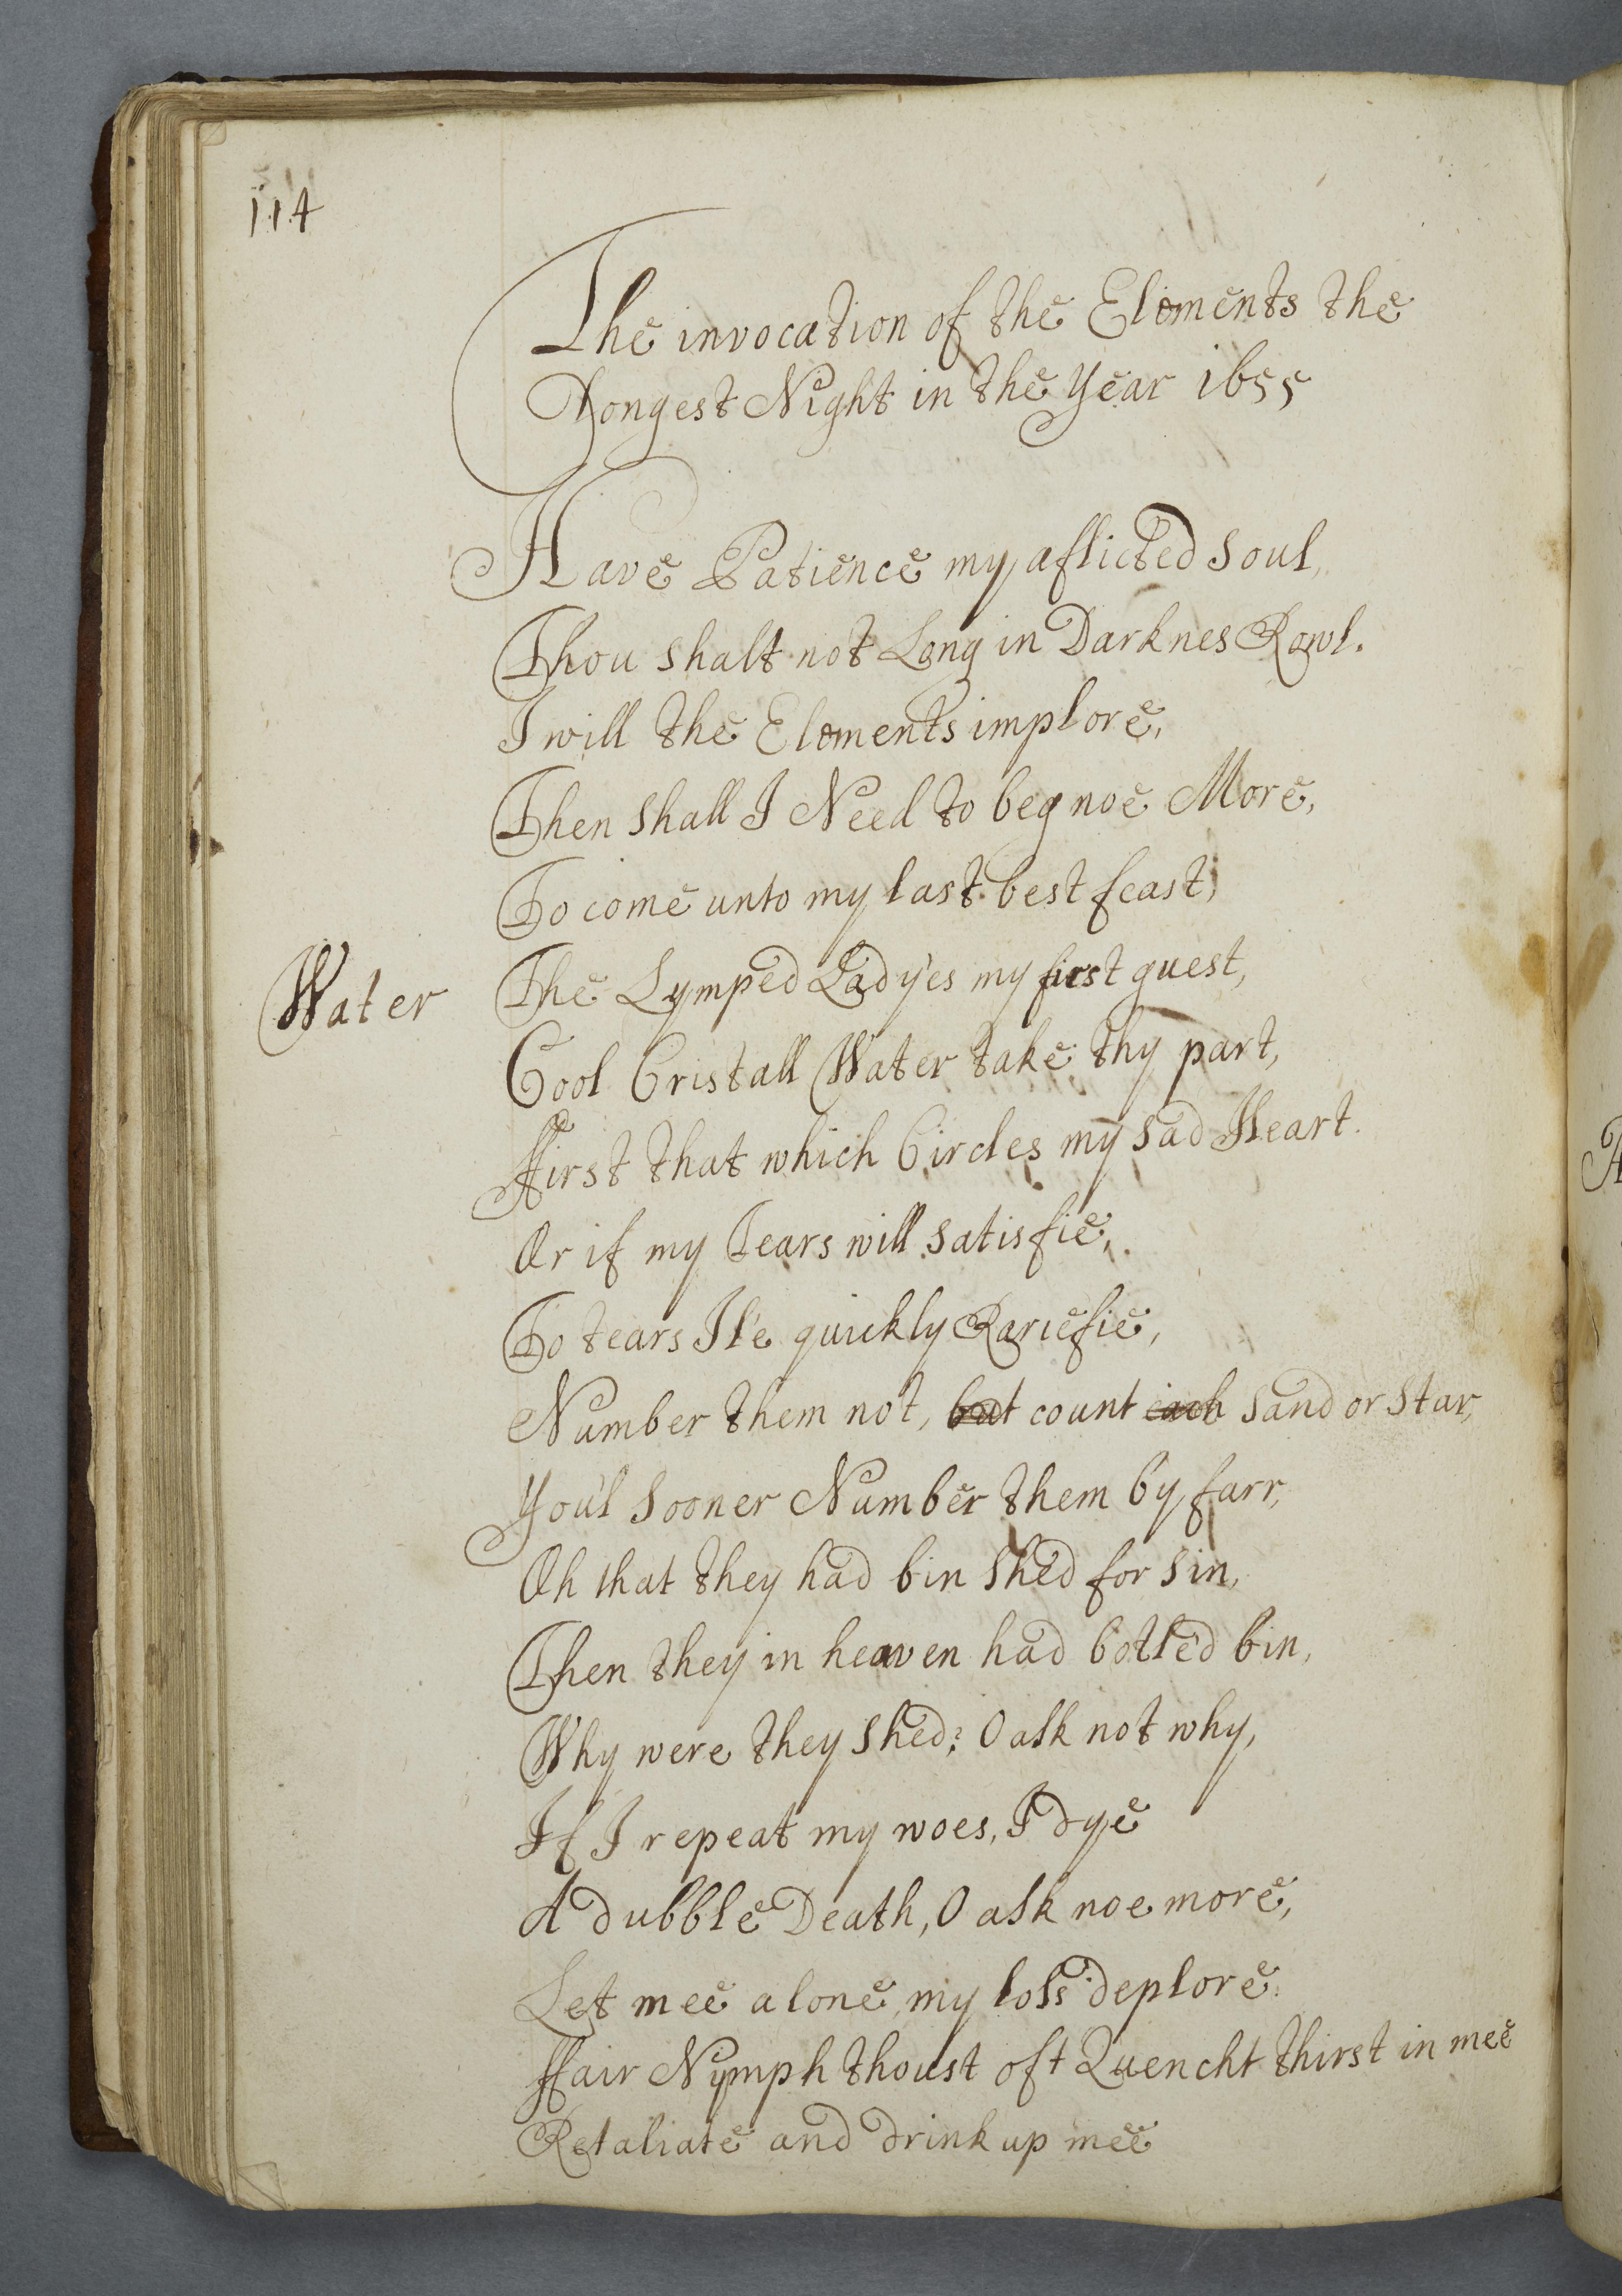 114
The invocation of the Elements the
Longest Night in the Year 1655
Have Patience my aflicted Soul,
Thou shalt not Long in Darknes Rowl.
I will the Elements implore,
Then shall I Need to beg noe More,
To come unto my last best feast;
Water
The Lymped Ladyes my first guest,
Cool Cristall Water take thy part,
ffirst that which Circles my sad Heart.
Or if my Tears will satisfie,
To tears I'le quickly Rariefie,
Number them not, but count each sand or star,
You'l sooner Number them by farr,
Oh that they had bin shed for sin,
Then they in heaven had botled bin,
Why were they shed? O ask not why,
If I repeat my woes, I dye
A dubble Death, O ask noe more,
Let mee alone my loss deplore.
ffair Nymph thoust oft Quencht thirst in mee
Retaliate and drink up mee